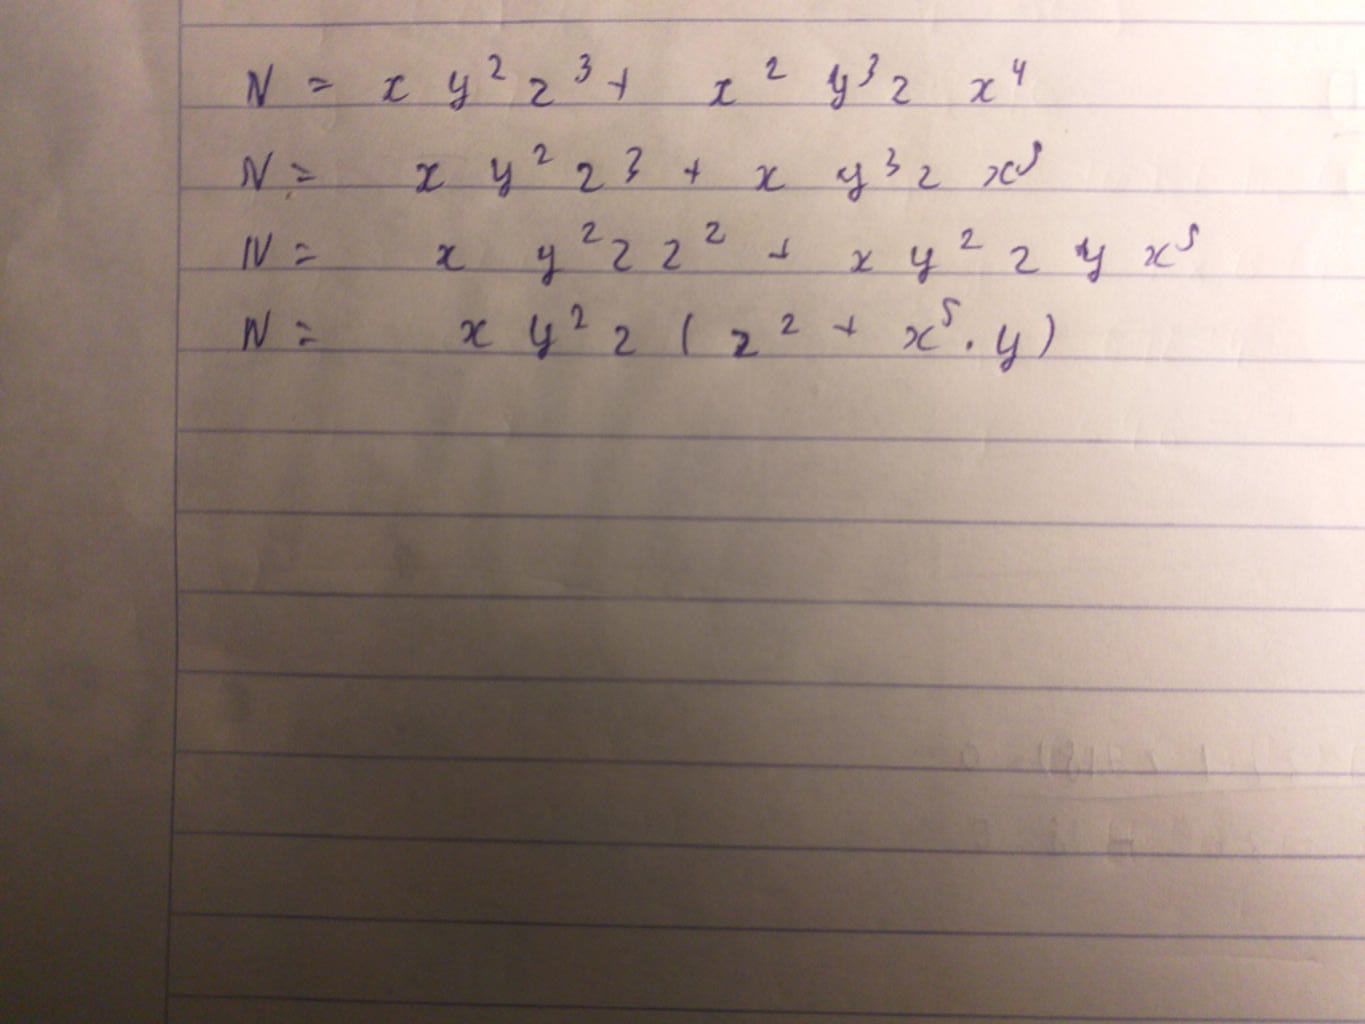 N = x y² z³ + x² y³ z x⁴
N = x y² z³ + x y³ z x⁵
N = x y² z z² + x y² z y x⁵
N = x y² z ( z² + x⁵ . y )